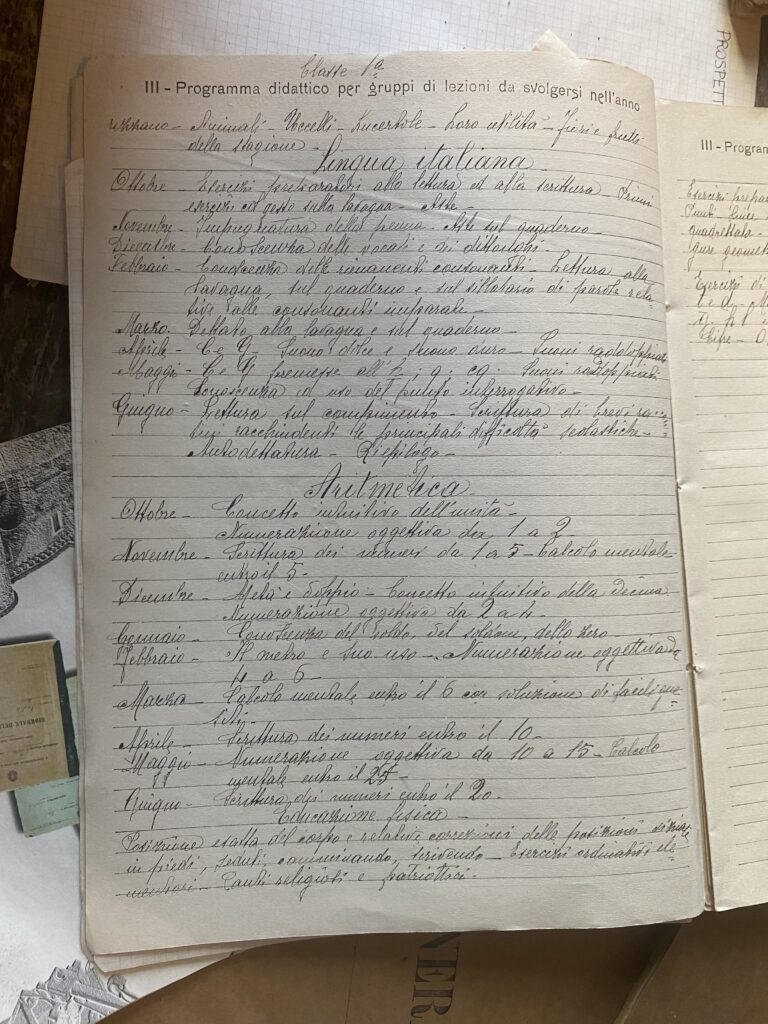 Classe 1ª
III - Programma didattico per gruppi di lezioni da svolgersi nell'anno
Animali - Uccelli - Lucertole - Loro utilità - Fiori e frutti
della stagione -
Lingua italiana
Ottobre - Esercizi preparatori alla lettura ed alla scrittura - Primi
esercizi col gesto sulla lavagna - Aste -
Novembre - Impugnatura della penna - Aste sul quaderno -
Dicembre - Conoscenza delle vocali e dei dittonghi -
Febbraio - Conoscenza delle rimanenti consonanti - Lettura alla
lavagna, sul quaderno e sul sillabario di parole rela-
tive alle consonanti imparate,
Marzo - Dettato alla lavagna e sul quaderno -
Aprile - C e G - Suono dolce e suono duro - Suoni raddoppiati
Maggio - C e G premesse all' Suoni raddoppiati
Conoscenza ed uso del punto interrogativo -
Giugno - Lettura sul compimento - Scrittura di brevi
racchiudenti le principali difficoltà scolastiche -
Autodettatura - Riepilogo -
Aritmetica
Ottobre - Concetto intuitivo dell'unità -
Numerazione oggettiva da 1 a 2
Novembre - Scrittura dei numeri da 1 a 5 - Calcolo mentale
entro il 5 -
Dicembre - Metà e doppio - Concetto intuitivo della decina
Numerazione oggettiva da 2 a 4 -
Gennaio - Conoscenza del soldo, del soldone, dello zero -
Febbraio - Il metro e suo uso - Numerazione oggettiva da
4 a 6 -
Marzo - Calcolo mentale entro il 6 con soluzione di facili que-
siti -
Aprile - Scrittura dei numeri entro il 10 -
Maggio - Numerazione oggettiva da 10 a 15 - Calcolo
mentale entro il 25 -
Giugno - Scrittura dei numeri entro il 20 -
Educazione fisica -
Posizione esatta del corpo e relative correzioni delle posizioni
in piedi, seduti, camminando, scrivendo - Esercizi ordinativi ele-
mentari - Canti religiosi e patriottici -
III - Program
Esercizi prepar
quadrettata -
gure geomet
Esercizi di
Cifre - 0,
PROSPETT
GIORNALE DELL
NER